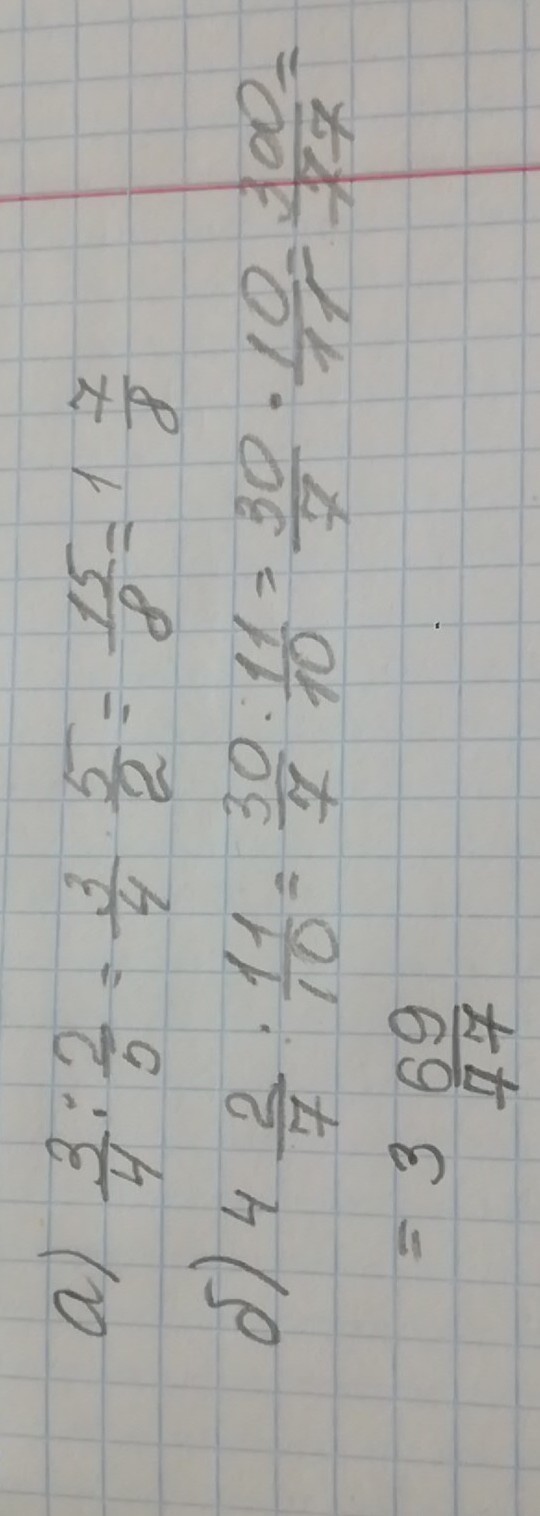 а) 3/4 : 2/5 = 3/4 · 5/2 = 15/8 = 1 7/8
б) 4 2/7 · 11/10 = 30/7 : 11/10 = 30/7 · 10/11 = 300/77 =
= 3 69/77